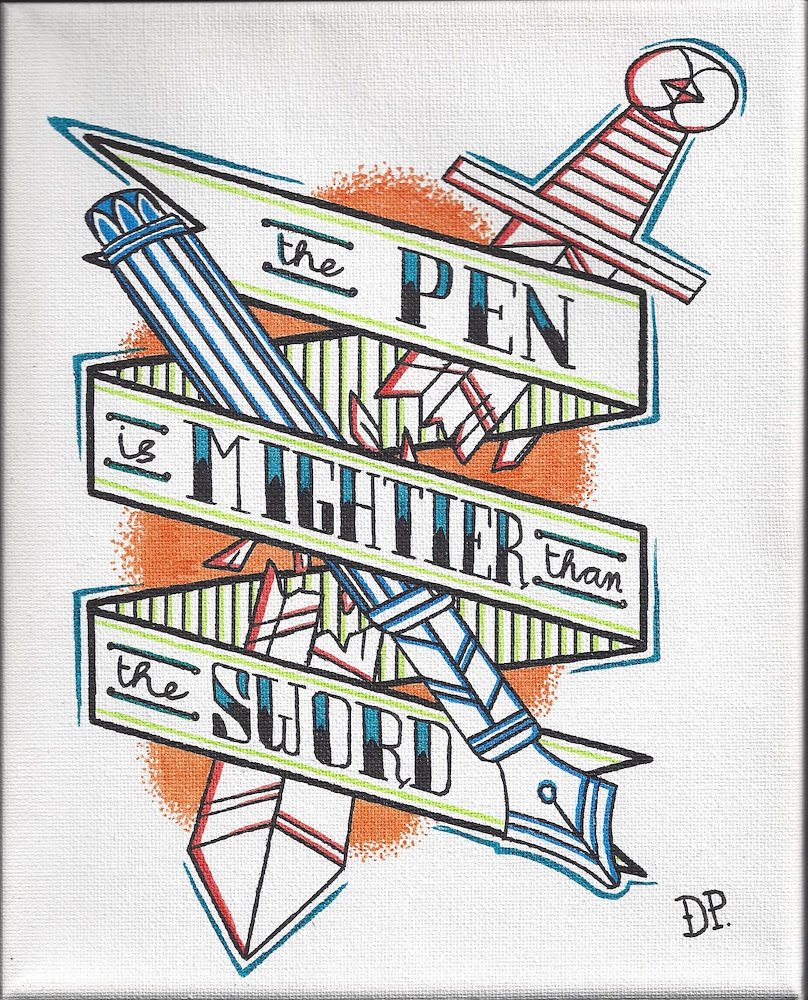 the PEN
is MIGHTIER than
the SWORD
DP.